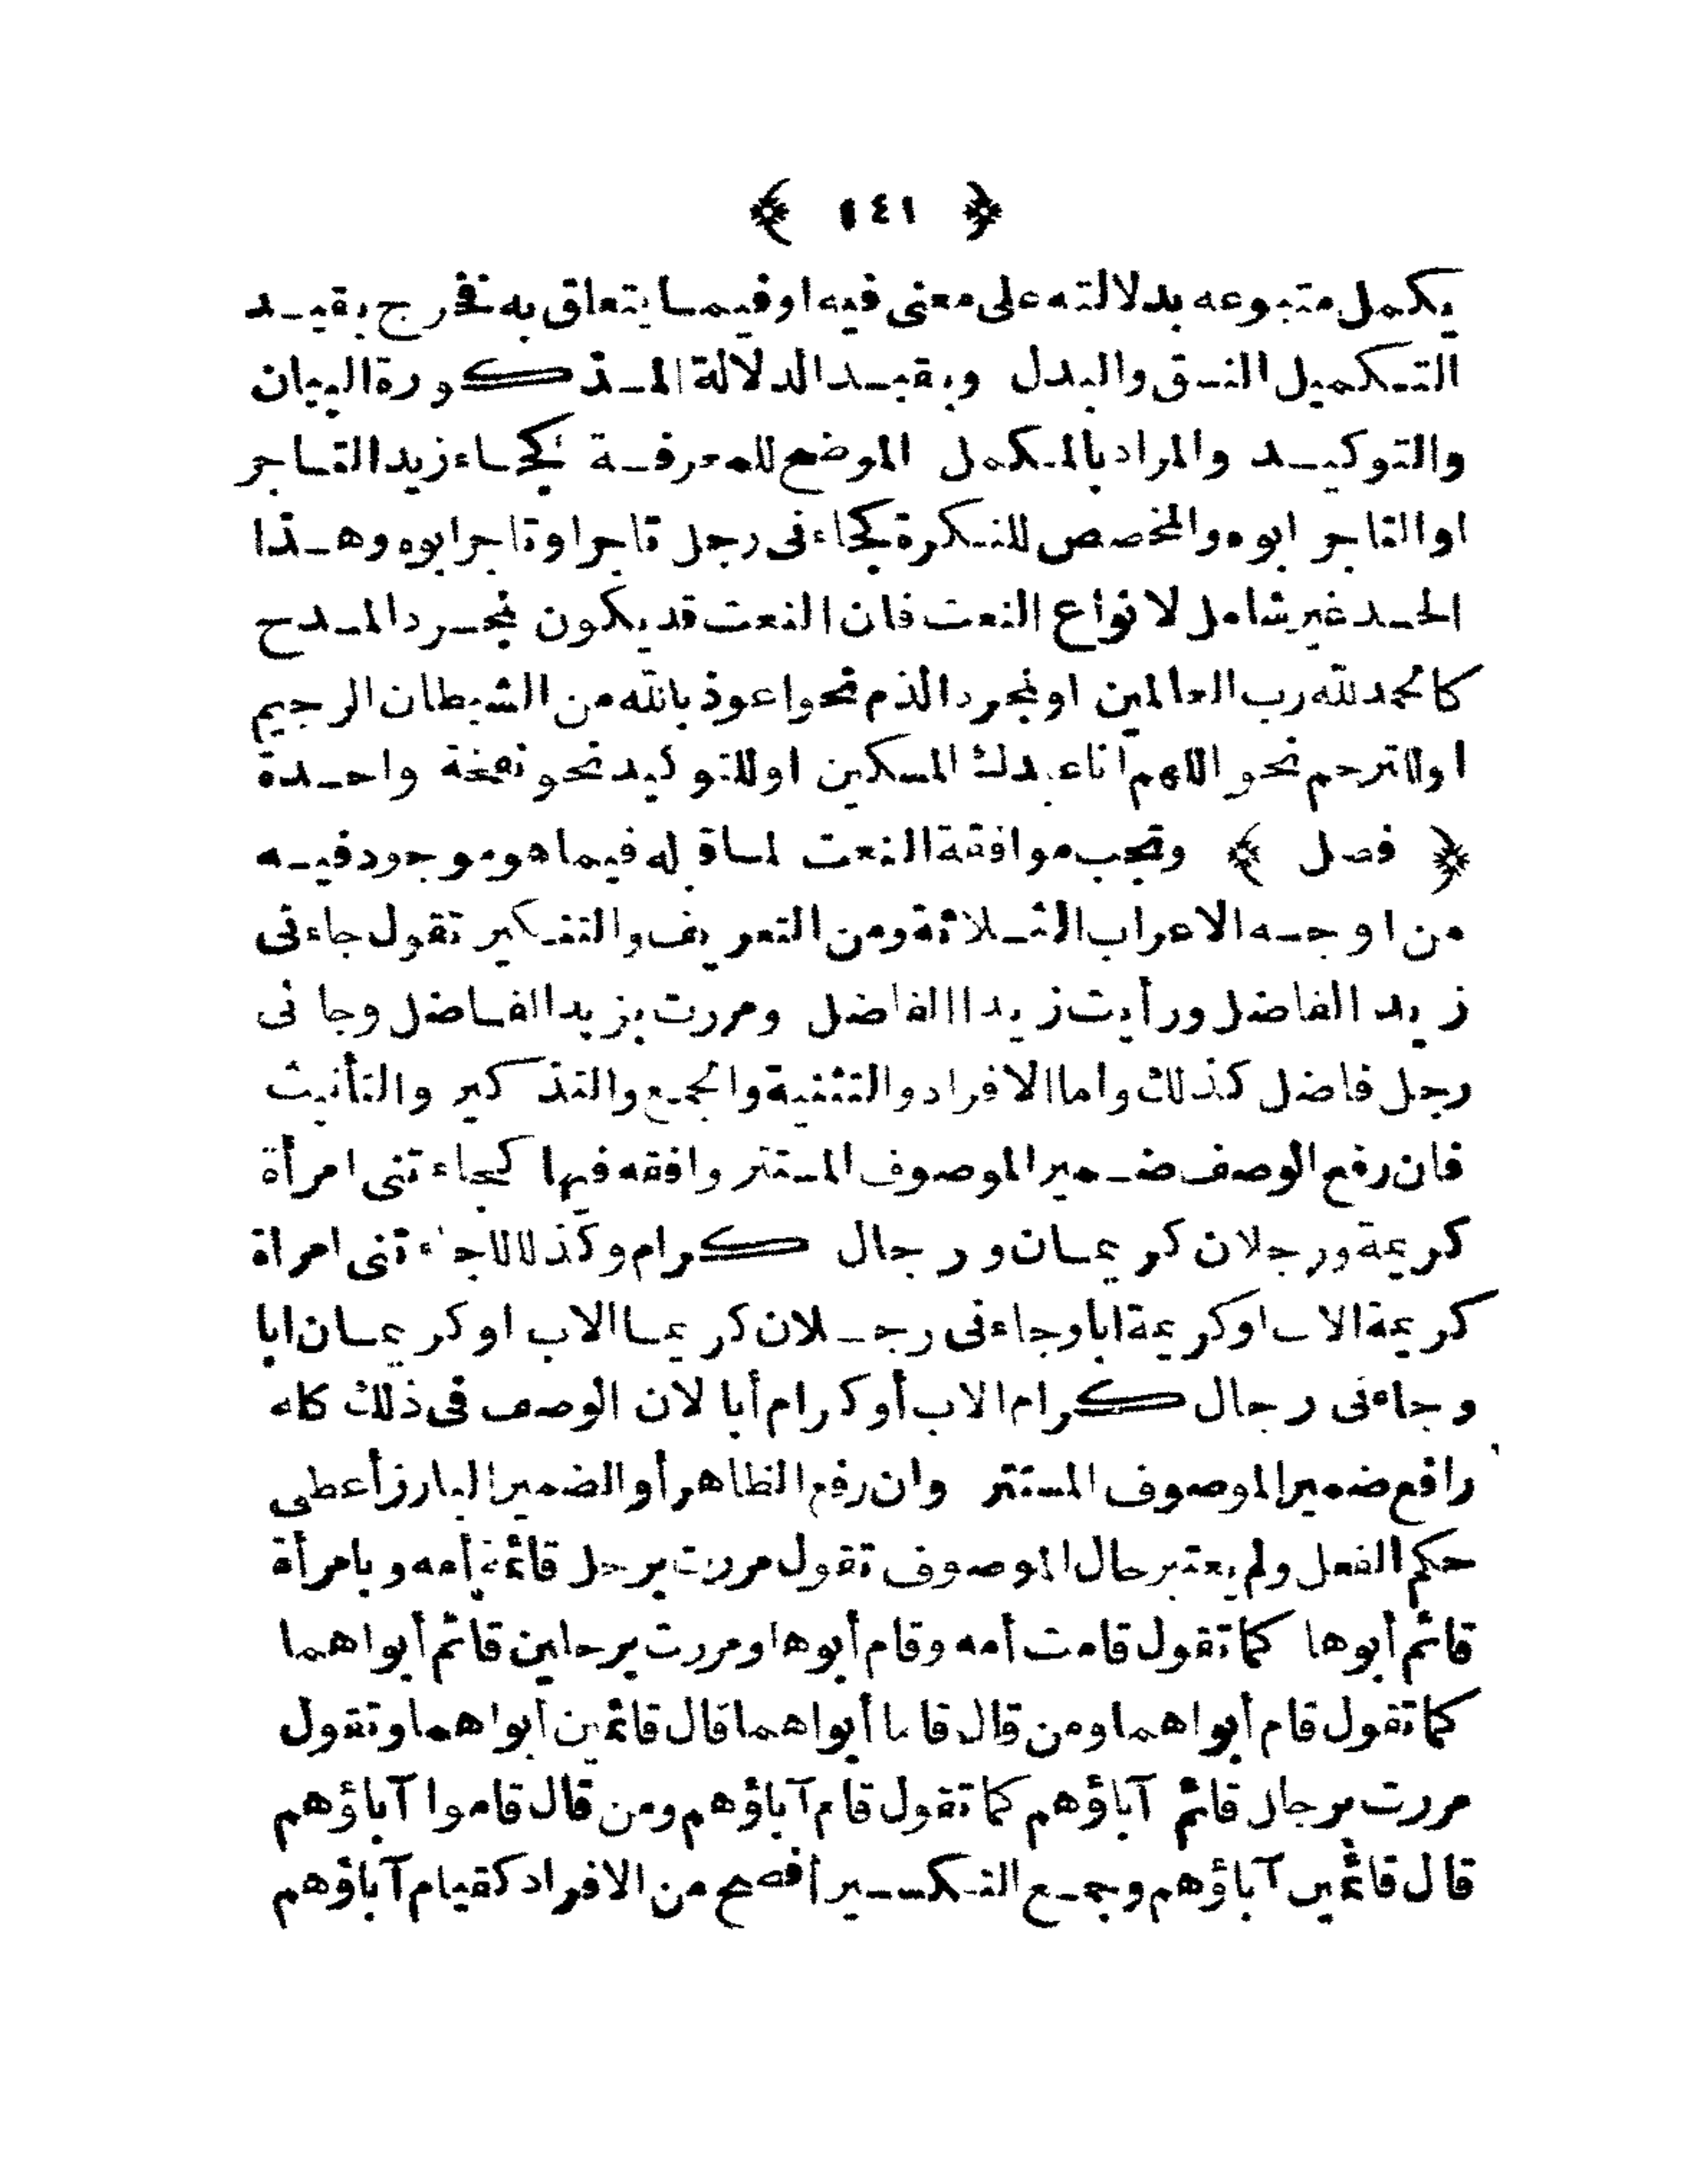 ﴿ ١٤١ ﴾
يكمل متبوعه بدلالته على معنى فيه او فيما يتعلق به فخرج بقيد
التكميل النسق والبدل وبقيد الدلالة المذكورة البيان
والتوكيد والمراد بالمكمل الموضح للمعرفة كجاء زيد التاجر
او التاجر ابوه والمخصص للنكرة كجاءنى رجل تاجر او تاجر ابوه وهذا
الحد غير شامل لانواع النعت فان النعت قد يكون لمجرد المدح
كالحمد لله رب العالمين او لمجرد الذم نحو اعوذ بالله من الشيطان الرجيم
او للترحم نحو اللهم انا عبدك المسكين او للتوكيد نحو نفخة واحدة
﴿ فصل ﴾ وتجب موافقة النعت لما قبله فيما هو موجود فيه
من اوجه الاعراب الثلاثة ومن التعريف والتنكير تقول جاءنى
زيد الفاضل ورأيت زيدا الفاضل ومررت بزيد الفاضل وجانى
رجل فاضل كذلك واما الافراد والتثنية والجمع والتذكير والتأنيث
فان رفع الوصف ضمير الموصوف المستتر وافقه فيها كجاءتنى امرأة
كريمة ورجلان كريمان ورجال كرام وكذلك جاءتنى امراة
كريمة الاب او كريمة ابا وجاءنى رجلان كريما الاب او كريمان ابا
وجاءنى رجال كرام الاب أو كرام أبا لان الوصف فى ذلك كله
رافع ضمير الموصوف المستتر وان رفع الظاهر أو الضمير البارز أعطى
حكم الفعل ولم يعتبر حال الموصوف تقول مررت برجل قائمة أمه وبامرأة
قائم أبوها كما تقول قامت أمه وقام أبوها ومررت برجلين قائم أبواهما
كما تقول قام أبواهما ومن قال قاما أبواهما قال قائمين أبواهما وتقول
مررت برجال قائم آباؤهم كما تقول قام آباؤهم ومن قال قاموا آباؤهم
قال قائمين آباؤهم وجمع التكسير أفصح من الافراد كقيام آباؤهم